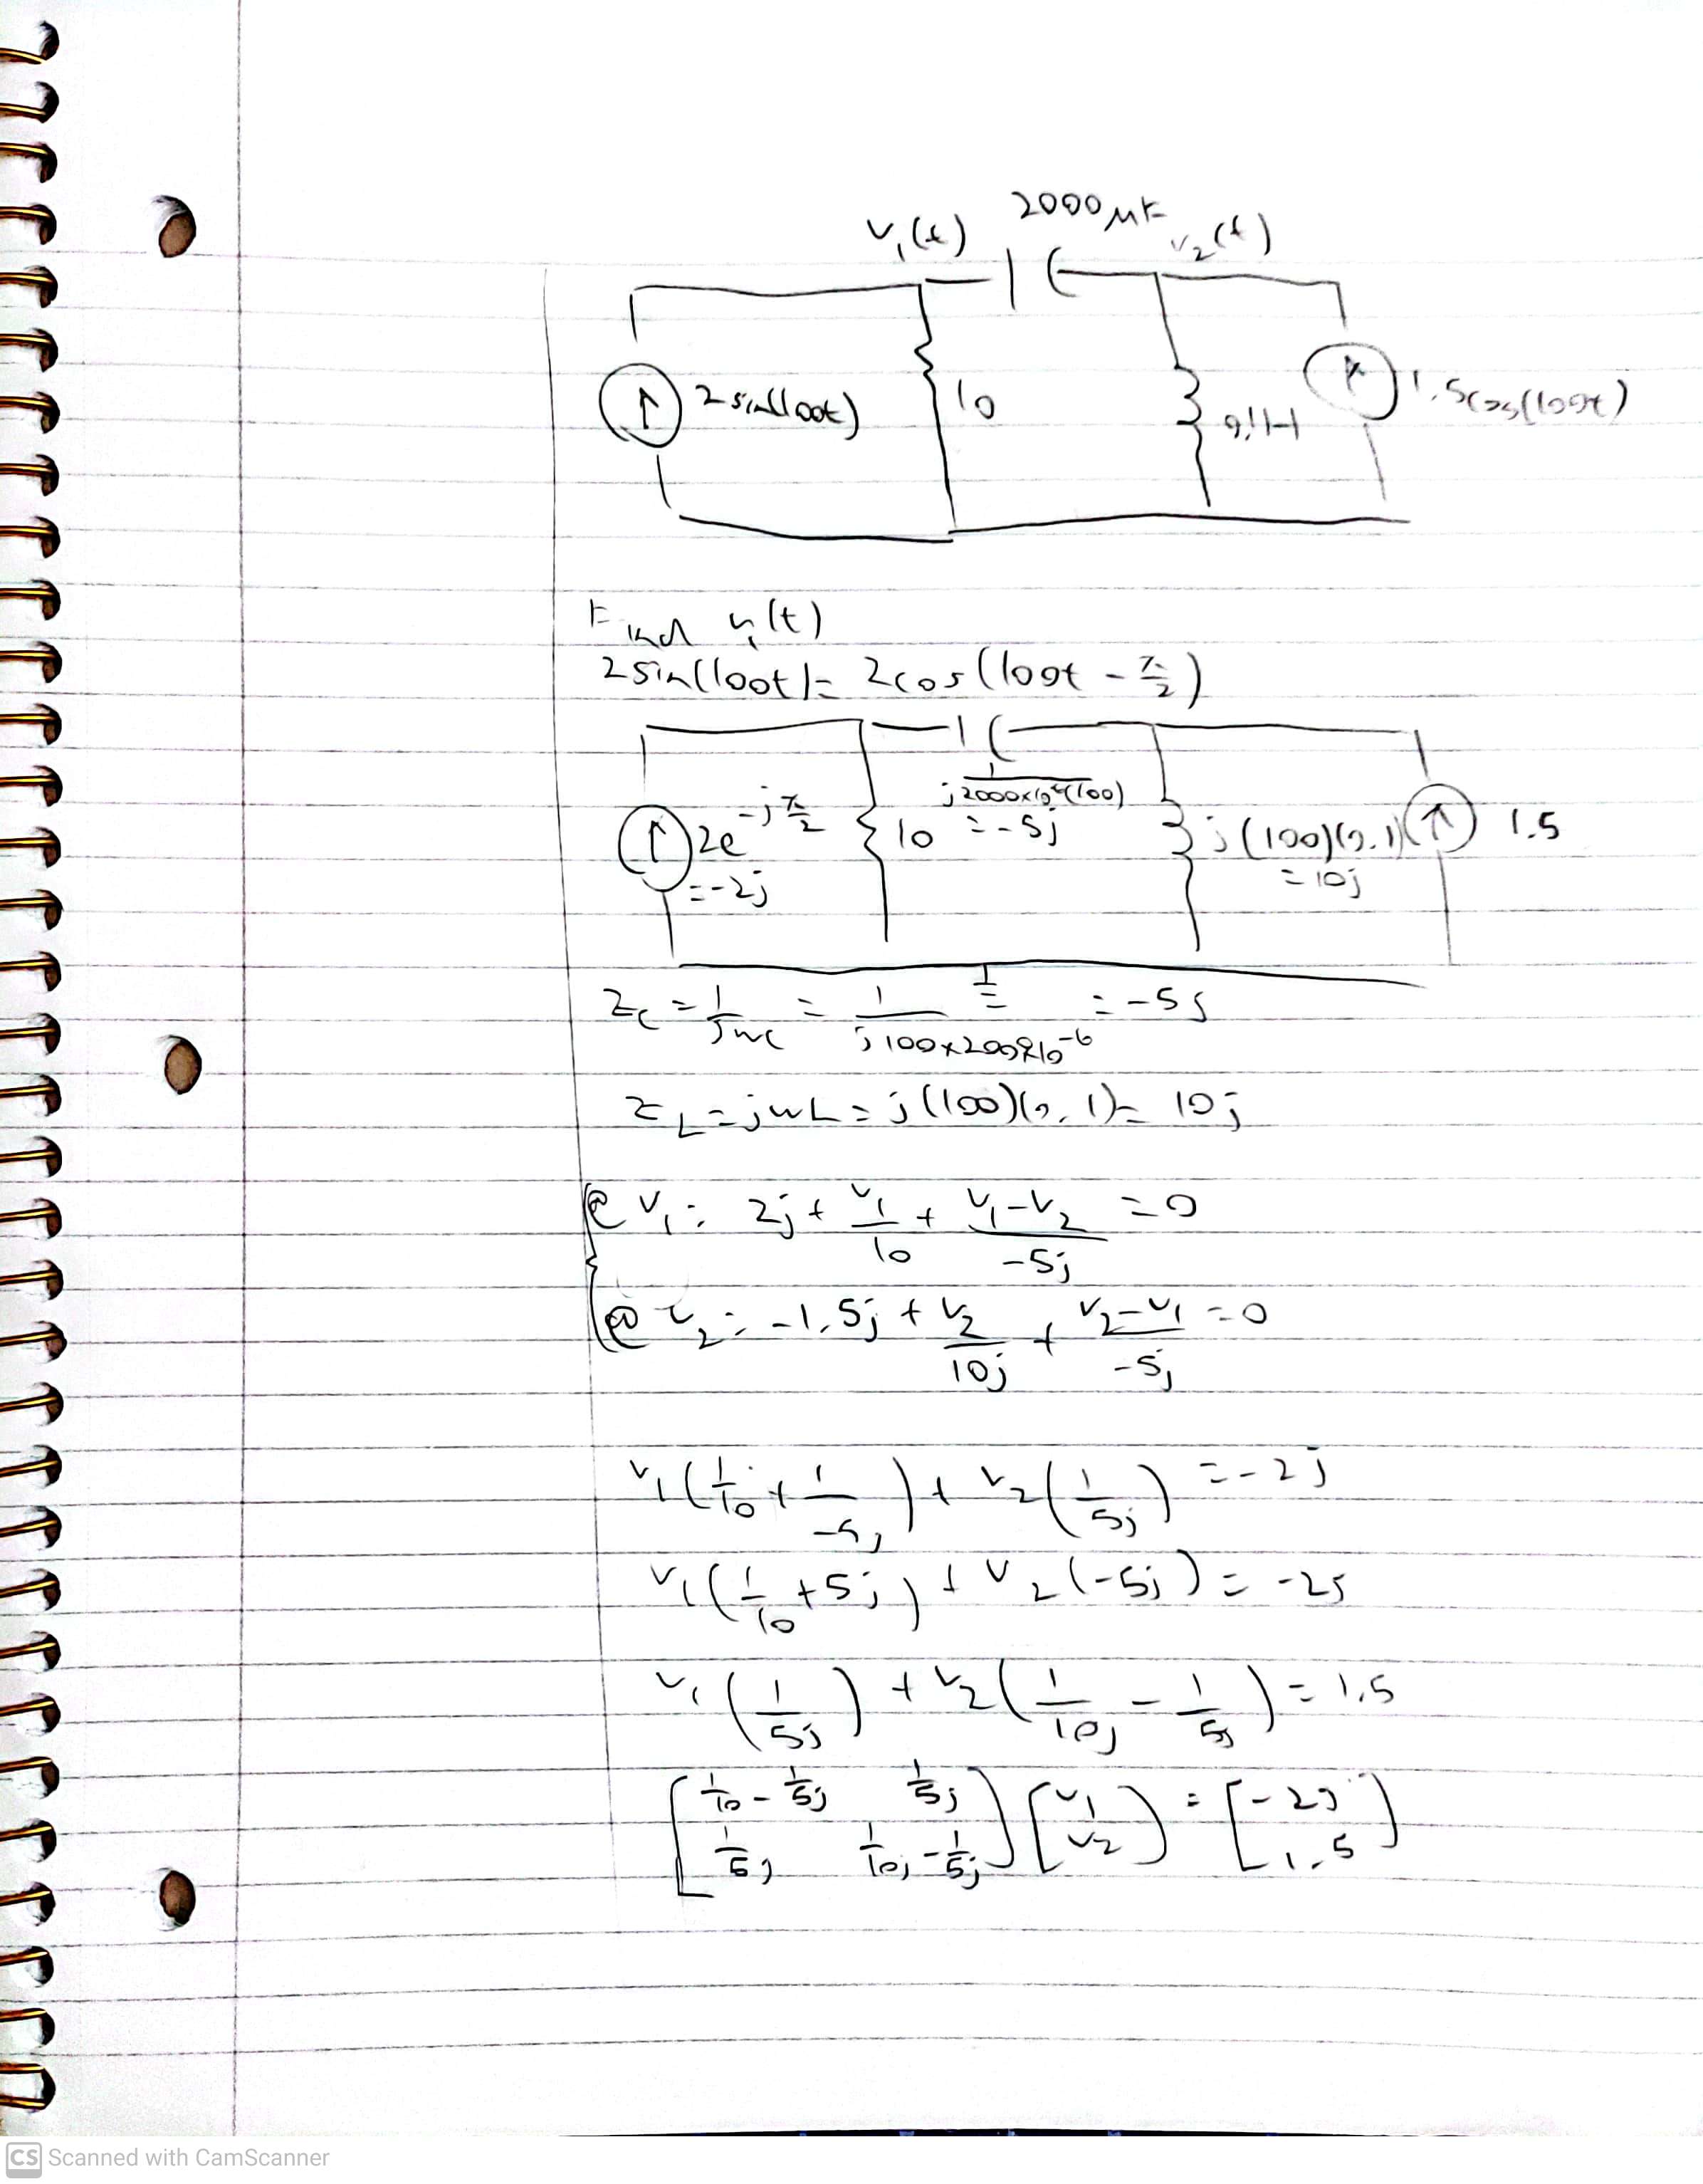 v₁(t) 2000μF v₂(t)
2sin(100t) 10 0.1H 1.5cos(100t)
Find v₁(t)
2sin(100t) = 2cos(100t - π/2)
2e^(-jπ/2) 10 1/(j2000x10⁻⁶(100)) j(100)(0.1) 1.5
=-2j = -5j = 10j
Z_C = 1/(jωC) = 1/(j100x2000x10⁻⁶) = -5j
Z_L = jωL = j(100)(0.1) = 10j
@ V₁: 2j + V₁/10 + (V₁-V₂)/(-5j) = 0
@ V₂: -1.5j + V₂/(10j) + (V₂-V₁)/(-5j) = 0
V₁(1/10 + 1/(-5j)) + V₂(1/(5j)) = -2j
V₁(1/10 + 5j) + V₂(-5j) = -2j
V₁(1/(5j)) + V₂(1/(10j) - 1/(5j)) = 1.5
[1/10 - 1/(5j) 1/(5j)] [V₁] = [-2j]
[1/(5j) 1/(10j) - 1/(5j)] [V₂] [1.5]
CS Scanned with CamScanner